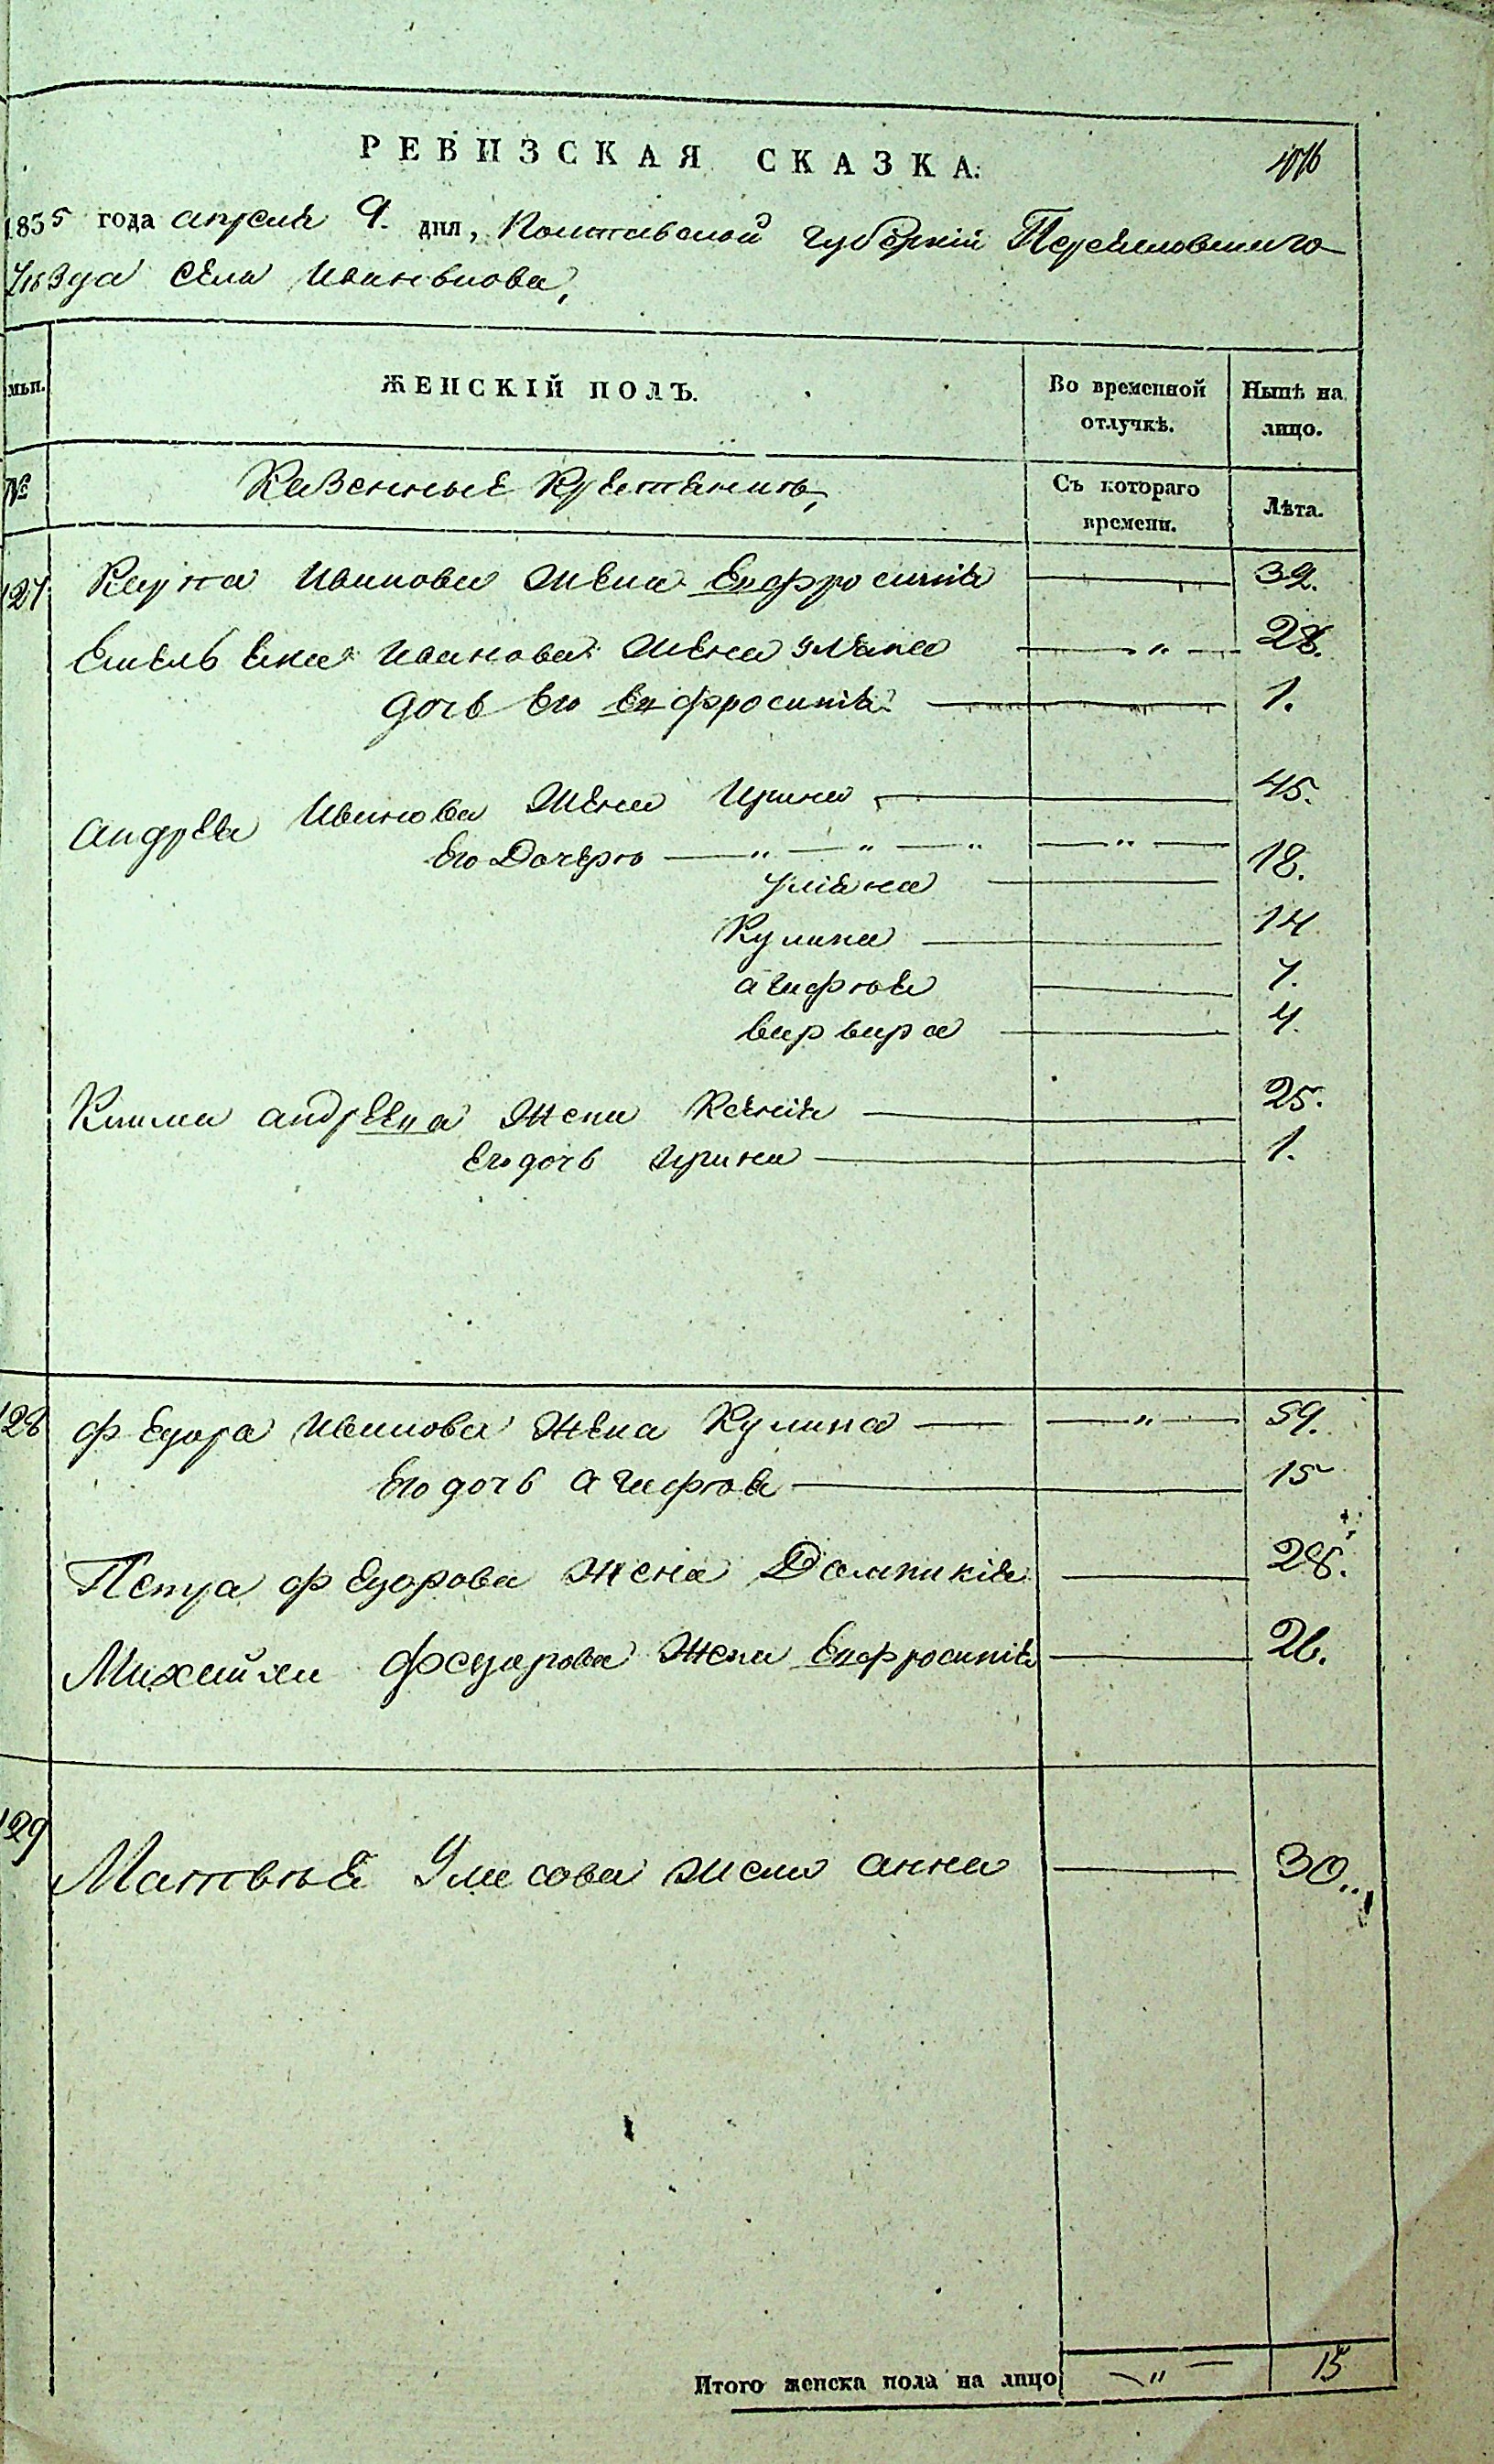 РЕВИЗСКАЯ СКАЗКА.
1835 года апреля 9. дня, Полтавской губернии Переяловшаго
Уѣзда села Иваньκова,
мьи. ЖЕНСКІЙ ПОЛЪ. Во временной отлучкѣ. Нынѣ на лицо.
№ Казенные Крестьяинъ, Съ котораго времени. Лѣта.
127 Карпа Иванова жена Ευфросинія 32.
Емельяна Иванова жена 28.
дочь Его Ευфросинія 1.
Андрея Иванова жена Ирина 45.
Его Дочерѣ
Уліяна 18.
Кулина 14
Агафія 7.
Варвара 4.
Клима Андреева жена Ксенія 25.
Его дочь Ирина 1.
128 Федора Иванова жена Кулина 59.
Его дочь Агафія 15
Петра Федорова жена Домникія 28.
Михайли Федорова жена Ευфросинія 26.
129
Матвѣя жена Анна 30.
Итого женска пола на лицо 15